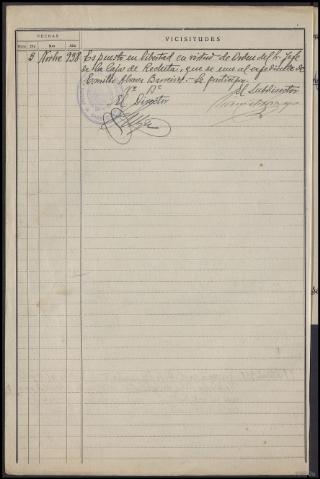 FECHAS VICISITUDES
Núm. Día Mes Año
3 Nvbre 938 Es puesto en libertad en virtud de Orden del Sr. Jefe
de la Caja de Recluta, que se une al expediente de
Alvarez .- Se participa.
Vº Bº
El Director El Subdirector